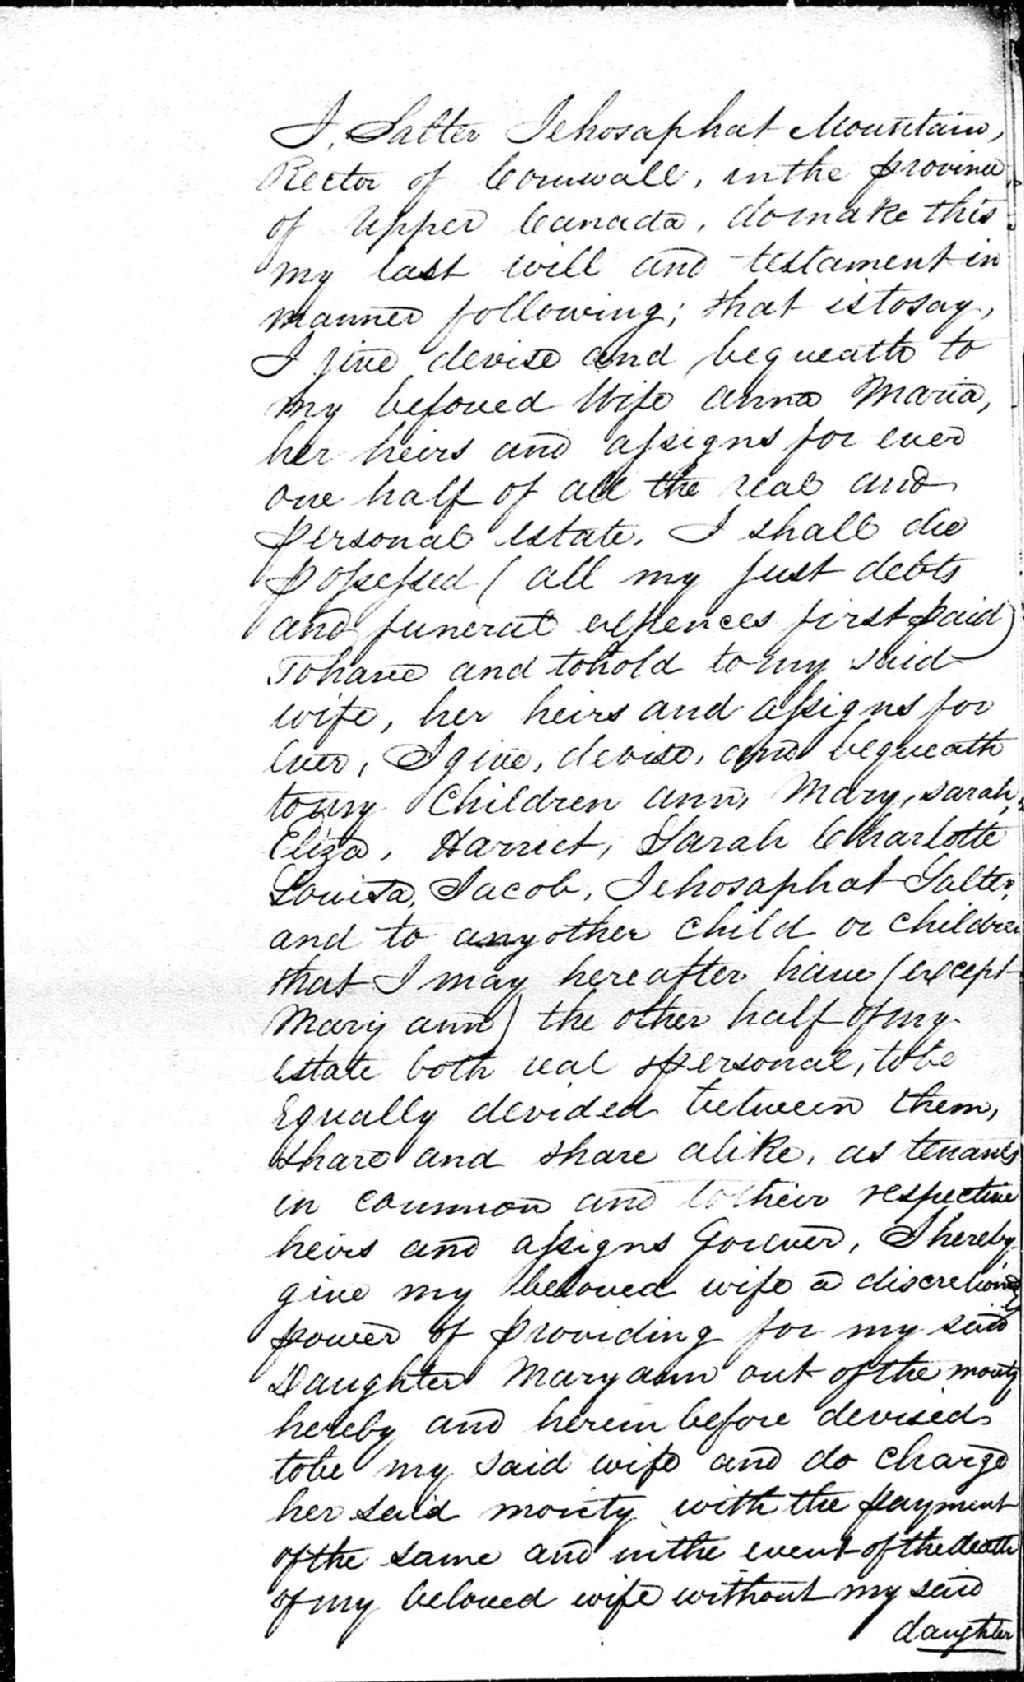 I, Salter Jehosaphat Mountain,
Rector of Cornwall, in the province
of Upper Canada, do make this
my last will and testament in
manner following; that is to say,
I give devise and bequeath to
my beloved Wife anna Maria,
her heirs and assigns for ever
one half of all the real and
personal estate. I shall die
possessed (all my just debts
and funeral expences first paid)
To have and to hold to my said
wife, her heirs and assigns for
ever, I give, devise, and bequeath
to my Children ann, Mary, Sarah,
Eliza, Harriet, Sarah Charlotte
Louisa, Jacob, Jehosaphat Salter,
and to any other child or children
that I may hereafter have (except
Mary ann) the other half of my
estate both real & personal, to be
Equally devided between them,
share and share alike, as tenants
in common and to their respective
heirs and assigns forever, I hereby
give my beloved wife a discretionary
power of providing for my said
Daughter Mary ann out of the moiety
hereby and herein before devised
to be my said wife and do charge
her said moiety with the payment
of the same and in the event of the death
of my beloved wife without my said
daughter